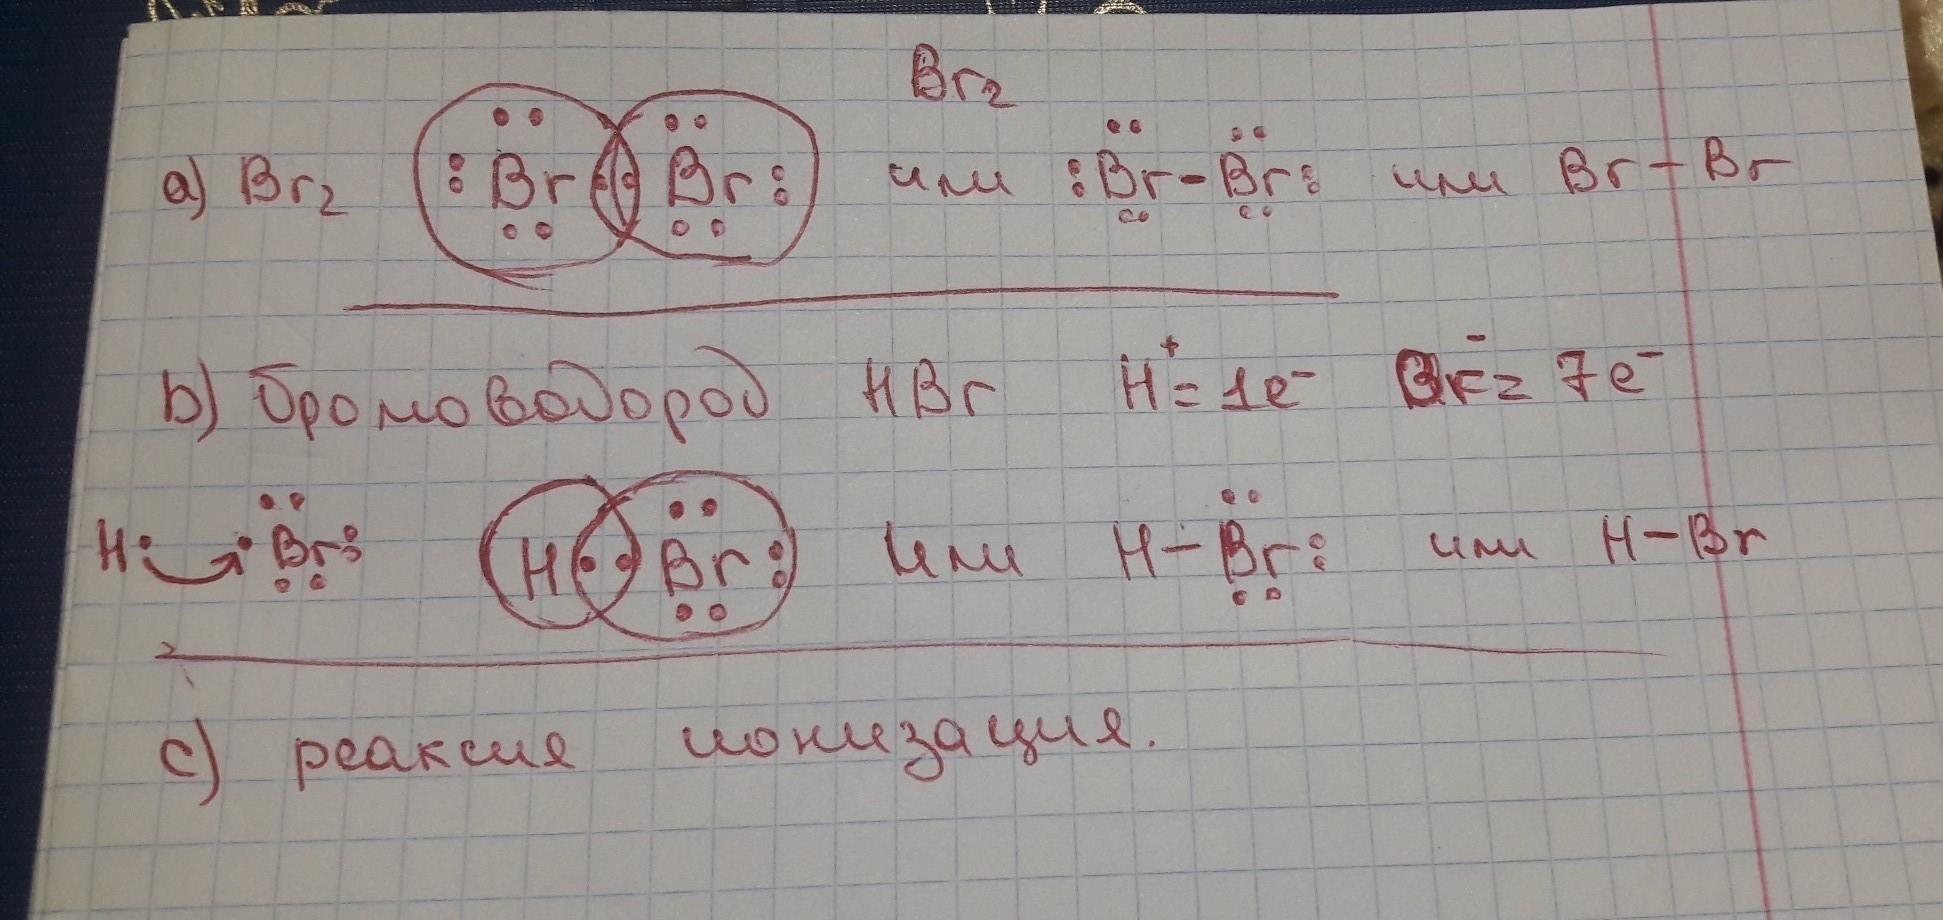 Br₂
a) Br₂ :Br::Br: или :Br-Br: или Br-Br
b) бромоводород HBr H⁺= 1e⁻ Br⁻= 7e⁻
H· ·Br: H:Br: или H-Br: или H-Br
c) реаксия ионизация.